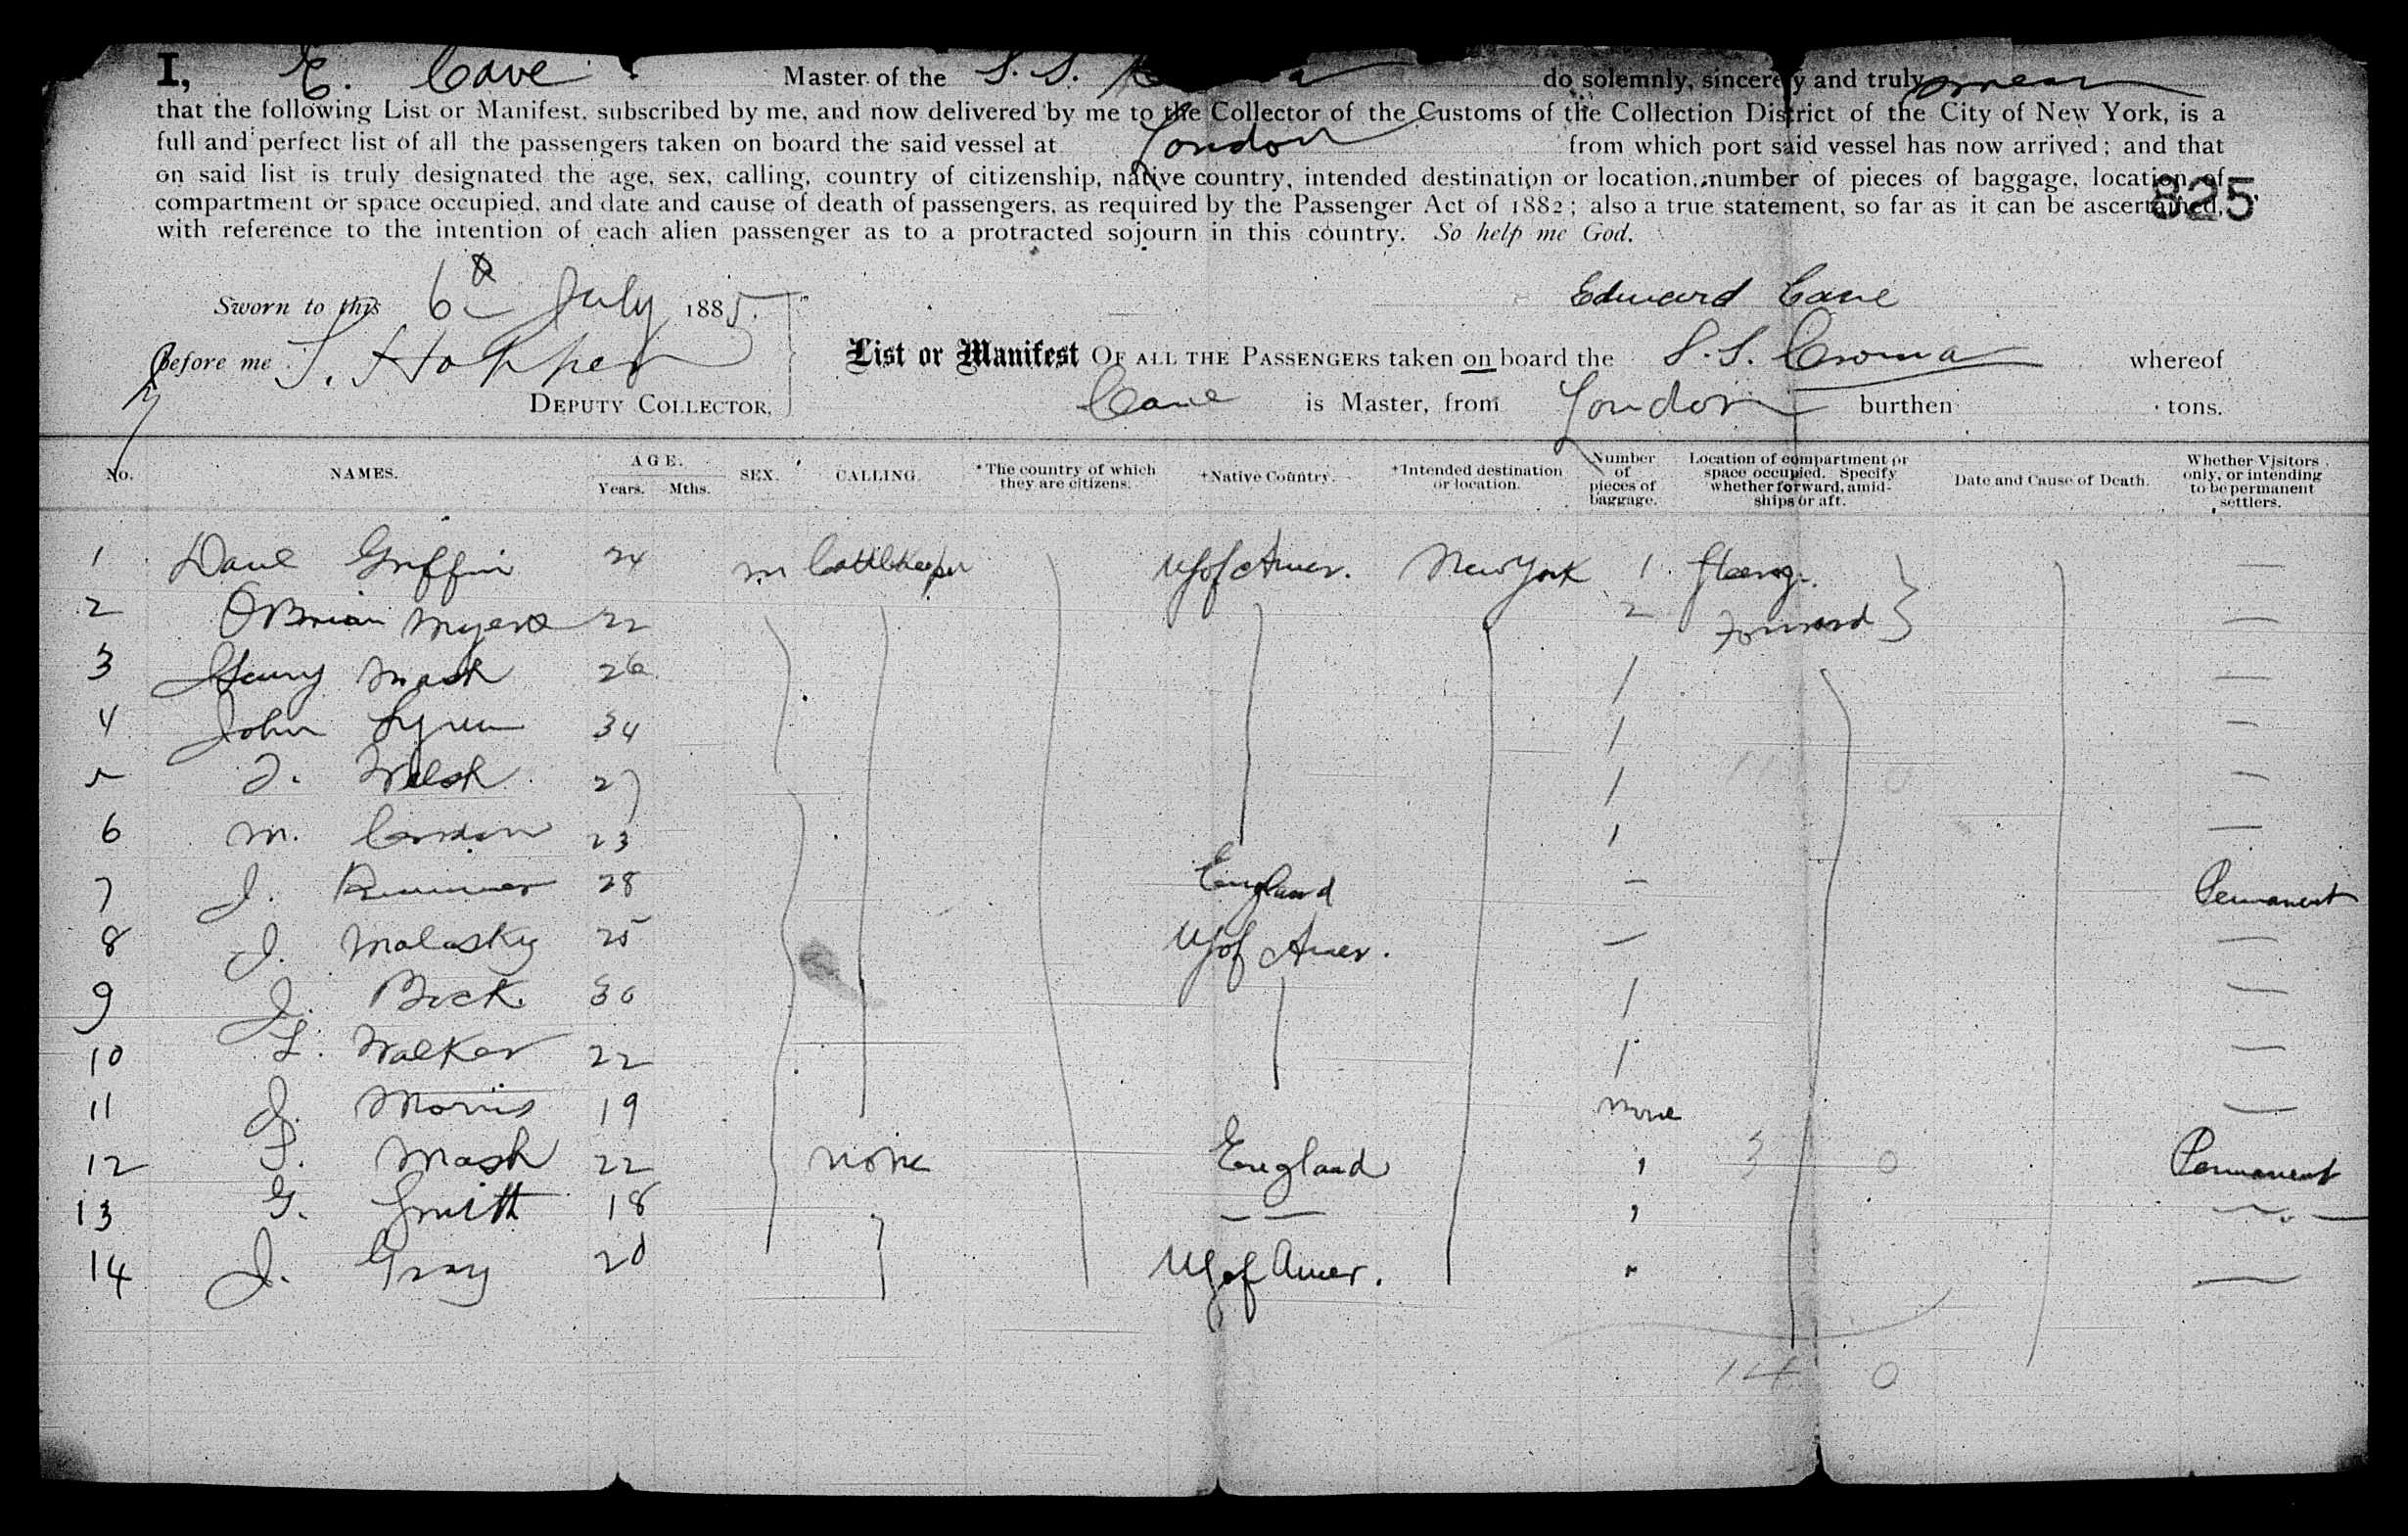 I, E. Cave Master of the S. S. do solemnly, sincerely and truly swear
that the following List or Manifest, subscribed by me, and now delivered by me to the Collector of the Customs of the Collection District of the City of New York, is a
full and perfect list of all the passengers taken on board the said vessel at London from which port said vessel has now arrived; and that
on said list is truly designated the age, sex, calling, country of citizenship, native country, intended destination or location, number of pieces of baggage, location of
compartment or space occupied, and date and cause of death of passengers, as required by the Passenger Act of 1882; also a true statement, so far as it can be ascertained,
with reference to the intention of each alien passenger as to a protracted sojourn in this country. So help me God.
825
Sworn to this 6th July 1885.
Edward Cave
before me T. Hopper
DEPUTY COLLECTOR.
List or Manifest OF ALL THE PASSENGERS taken on board the S.S. Croma whereof
Cave is Master, from London burthen tons.
No. NAMES. AGE. Years. Mths. SEX. CALLING. *The country of which they are citizens. +Native Country. +Intended destination or location. Number of pieces of baggage. Location of compartment or space occupied. Specify whether forward, amidships or aft. Date and Cause of Death. Whether Visitors only, or intending to be permanent settlers.
1 Dave Griffin 24 m Cattlekeeper US of Amer. New York 1 Steerage. —
2 O'Brian Myers 22 2 Forward —
3 Henry Mash 26 1 —
4 John 34 1 —
5 T. Welsh 27 1 — 11 0
6 M. 23 1 —
7 J. 28 England — Permanent
8 J. Malasky 25 US of Amer. — —
9 J. Bock 30 1 —
10 L. Walker 22 1 —
11 J. Morris 19 none —
12 F. Mash 22 none England , 3 0 Permanent
13 G. Smith 18 , — — , —
14 J. Gray 20 US of Amer. " —
14 0